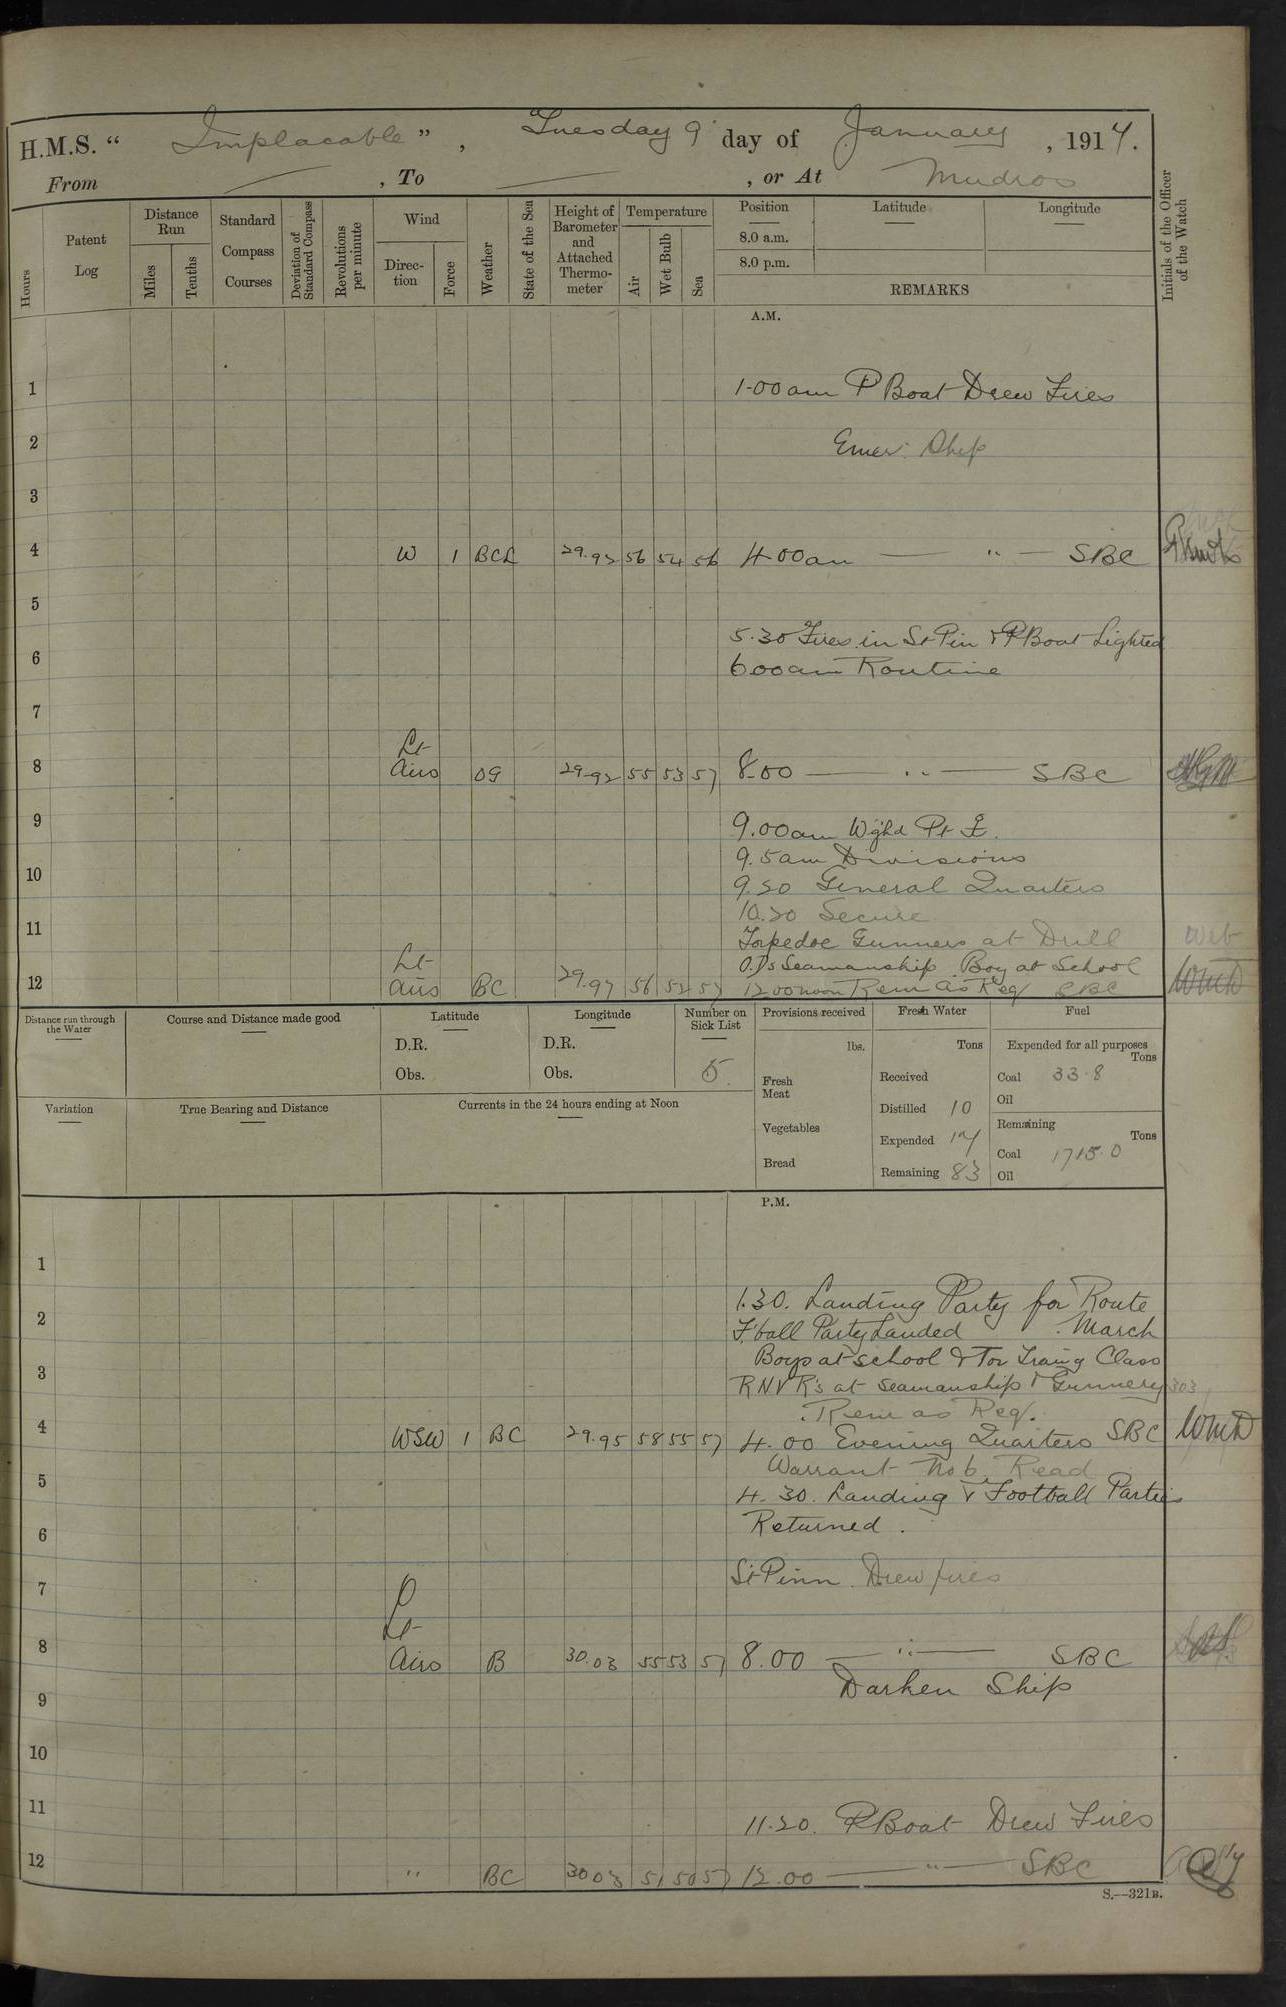 H.M.S. “ Implacable ” , Tuesday 9 day of January , 1917.
From — , To — , or At Mudros
Hours
Patent Log
Distance Run
Miles
Tenths
Standard Compass Courses
Deviation of Standard Compass
Revolutions per minute
Wind
Direc-tion
Force
Weather
State of the Sea
Height of Barometer and Attached Thermo-meter
Temperature
Air
Wet Bulb
Sea
Position
8.0 a.m.
8.0 p.m.
Latitude
Longitude
REMARKS
Initials of the Officer of the Watch
A.M.
1 1-00am P Boat Drew Fires
2 Emer: Ship
3
4 W 1 BCL 29.92 56 54 56 4-00am — " — SBC
5
5.30 Fires in St Pin & PBoat Lighted
6 6.00am Routine
7
Lt
8 Airs OG 29.92 55 53 57 8.00 — " — SBC
9 9.00am Wghd Pt
9.5am Divisions
10 9.20 General Quarters
10.20 Secure
11 Torpedoe Gunners at Drill
Lt O.Ds Seamanship Boy at School
12 Airs BC 29.97 56 52 57 1200noon Rem as Req SBC
Distance run through the Water
Course and Distance made good
Latitude
D.R.
Obs.
Longitude
D.R.
Obs.
Number on Sick List
5
Provisions received
lbs.
Fresh Meat
Vegetables
Bread
Fresh Water
Tons
Received
Distilled 10
Expended 14
Remaining 83
Fuel
Expended for all purposes
Tons
Coal 33.8
Oil
Remaining
Tons
Coal 1715.0
Oil
Variation
True Bearing and Distance
Currents in the 24 hours ending at Noon
P.M.
1
1.30. Landing Party for Route
2 F'ball Party Landed . March
Boys at school & Tor Traing Class
3 RNVR's at Seamanship & Gunnery 303
. Rem as Req.
4 WSW 1 BC 29.95 58 55 57 4.00 Evening Quarters SBC WMD
Warrant No 6. Read
5 4.30. Landing & Football Parties
6 Returned .
7 St Pinn Drew fires
Lt
8 Airs B 30.03 55 53 57 8.00 — " — SBC
9 Darken Ship
10
11 11.20. PBoat Drew Fires
12 " BC 30.03 51 50 57 12.00 — " — SBC
S.—321B.